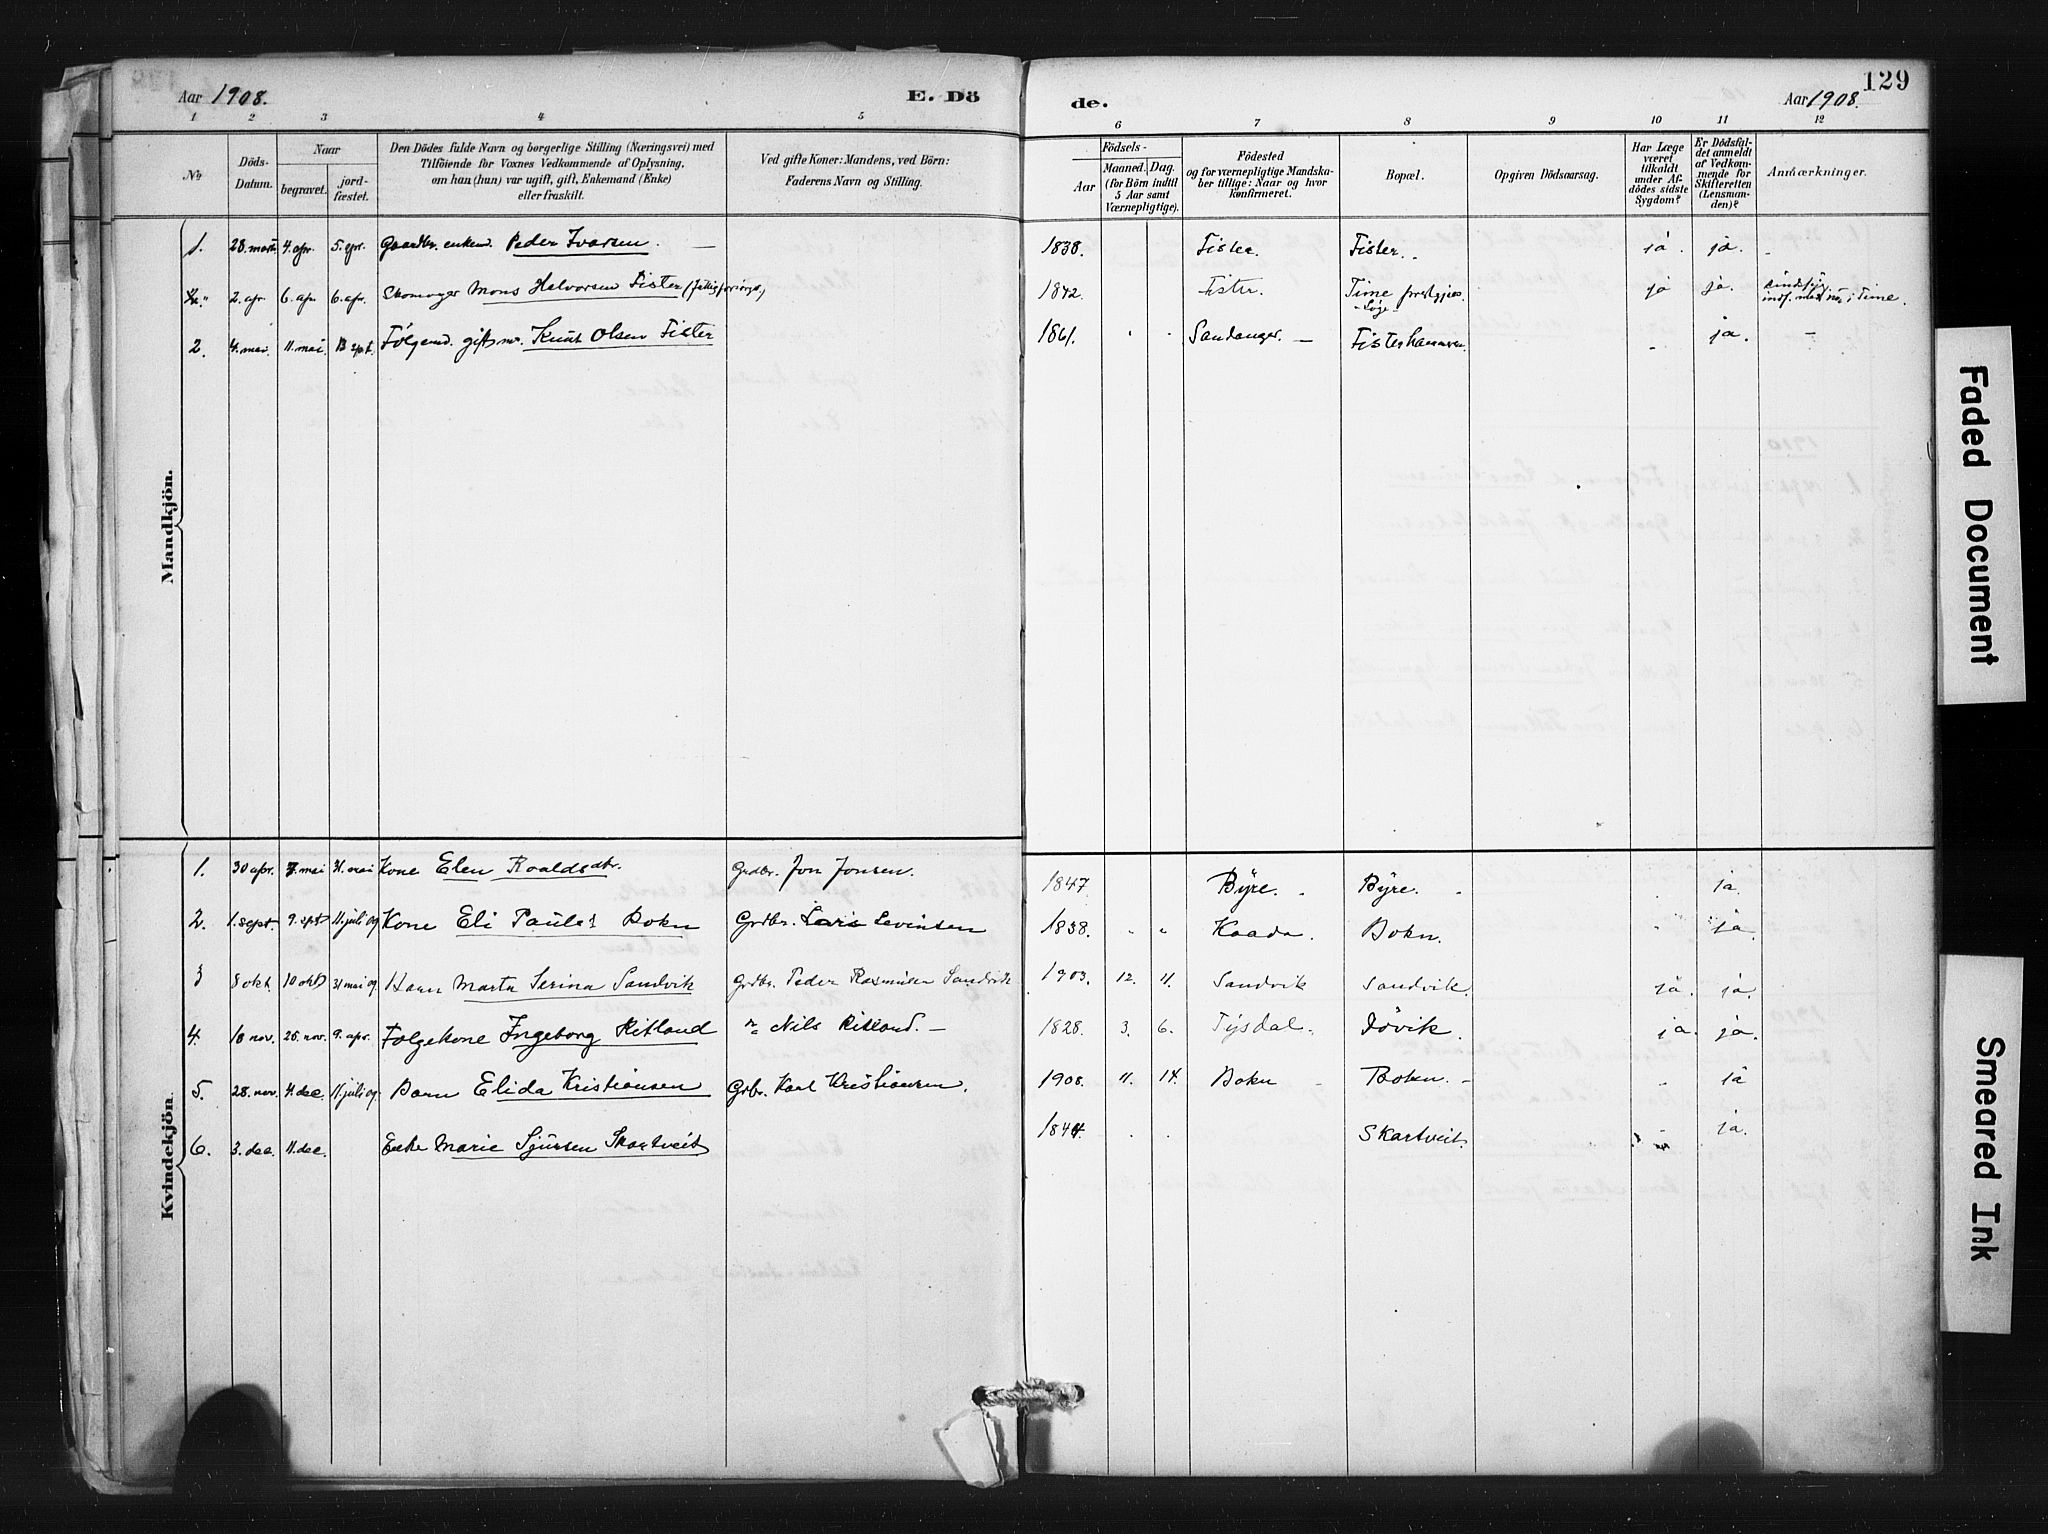 129
Aar 1908.
E. Dö
de.
Aar 1908.
1 2 3 4 5 6 7 8 9 10 11 12
No
Döds-
Datum.
Naar
begravet.
jord-
fæstet.
Den Dödes fulde Navn og borgerlige Stilling (Næringsvei) med
Tilföiende for Voxnes Vedkommende af Oplysning,
om han (hun) var ugift, gift, Enkemand (Enke)
eller fraskilt.
Ved gifte Koner: Mandens, ved Börn:
Faderens Navn og Stilling.
Födsels-
Aar
Maaned.
Dag.
(for Börn indtil
5 Aar samt
Værnepligtige).
Födested
og for værnepligtige Mandska-
ber tillige: Naar og hvor
konfirmeret.
Bopæl.
Opgiven Dödsaarsag.
Har Læge
været
tilkaldt
under Af-
dödes sidste
Sygdom?
Er Dödsfal-
det anmeldt
af Vedkom-
mende for
Skifteretten
(Lensman-
den)?
Anmærkninger.
Mandkjön.
1. 28. marts 4. apr. 5. apr. Gaardbr. enkem. Peder Ivarsen. — 1838. Fister. Fister. ja. ja.
2. apr. 6. apr. 6. apr. Skomager Mons Halvorsen Fister 1842 Fister. Time ja ja. i Time.
2. 4. mai. 11. mai Følgemd. gift Knut Olsen Fister 1861. Sandanger. — Fisterhammeren. ja. —
Kvindekjön.
1. 30 apr. 7. mai 31. mai Kone Elen Roaldsdtr. Grdbr. Jon Jonsen. 1847 Byre. Byre. ja.
2. 1. sept. 9. sept 11. juli 09 Kone Eli Paulsd Bokn Grdbr. Levinsen 1838. Kaada. Bokn. ja.
3 8 okt. 10 okt 31 mai 09 Barn Marta Serina Sandvik Grdbr. Peder Rasmusen Sandvik 1903. 12. 11. Sandvik Sandvik. ja. ja.
4. 18 nov. 25. nov. 9. apr. Følgekone Ingeborg Ritland " Nils Ritland. — 1828. 3. 6. Tysdal. Døvik. ja. ja.
5. 28. nov. 4. dec. 11. juli 09 Barn Elida Kristiansen Grbr. Karl Kristiansen. 1908. 11. 14. Bokn Bokn. — ja
6. 3. dec. 11. dec. Enke Marie Sjursen Skartveit 1844. Skartveit. ja.
Faded Document
Smeared Ink